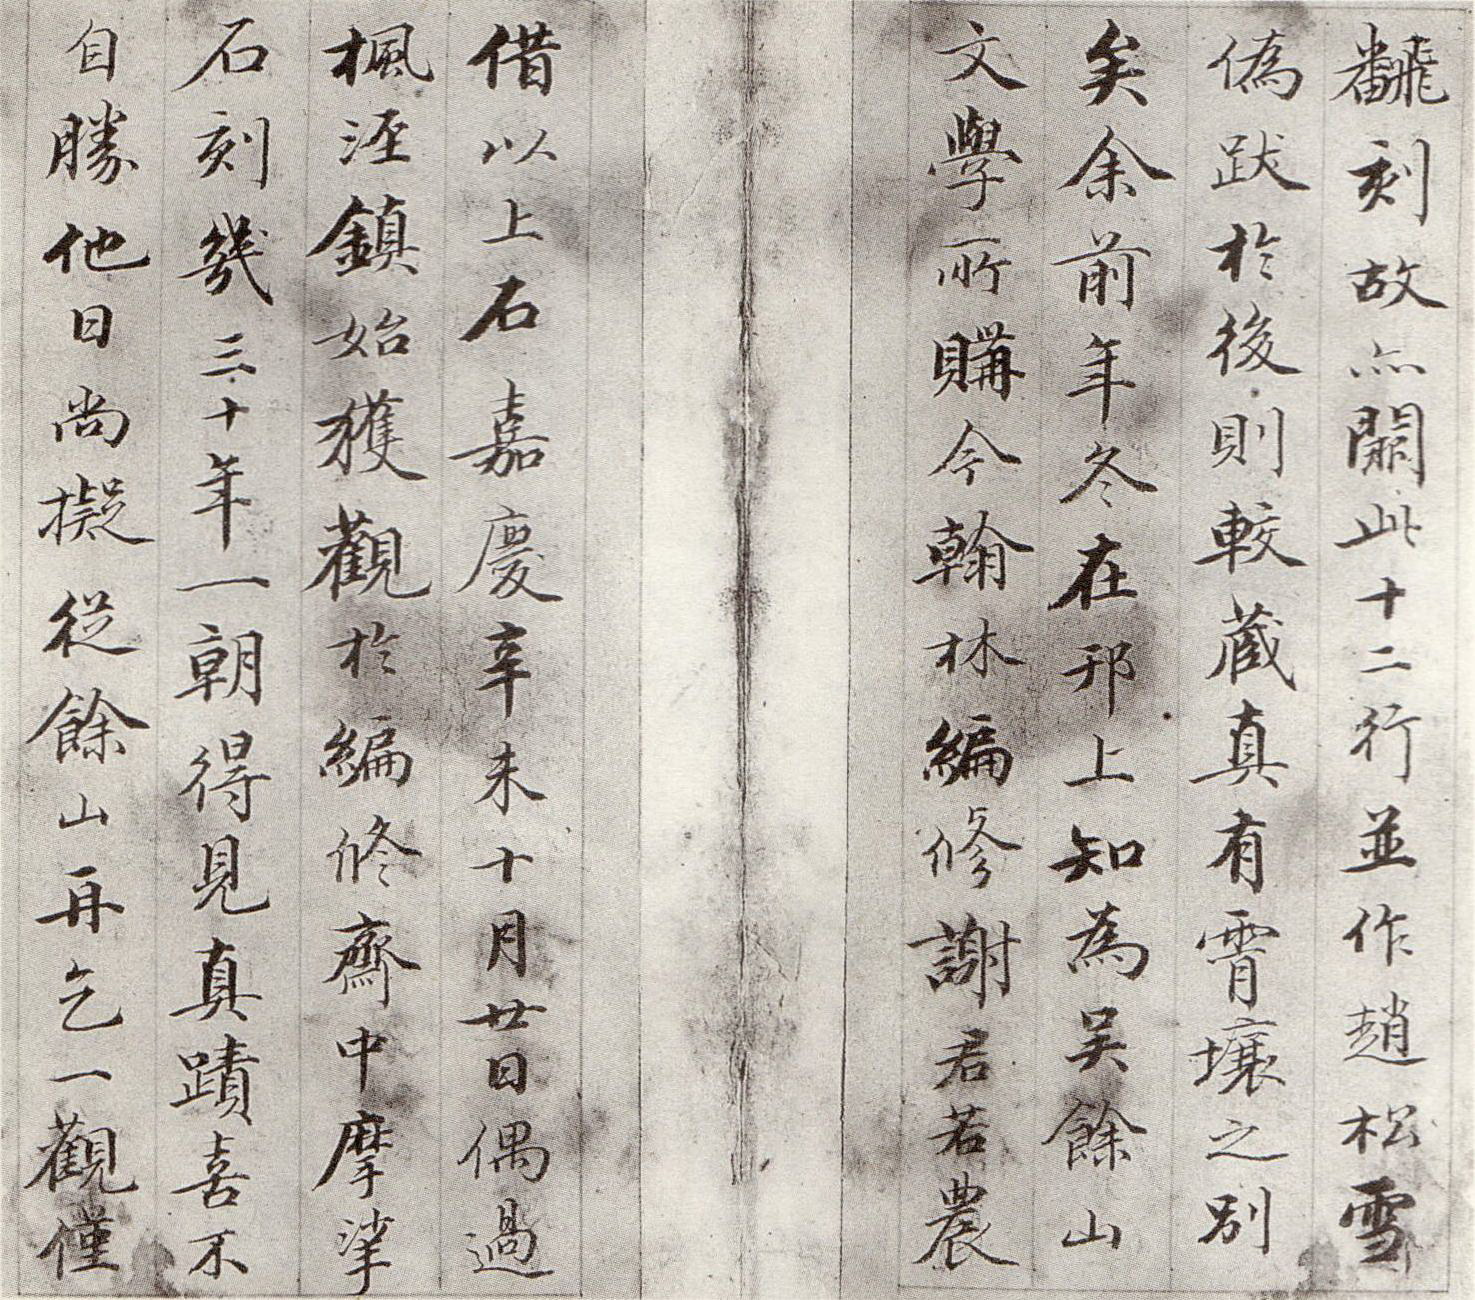 飜刻故亦闕此十二行並作趙松雪
偽跋於後則較蔵真有霄壤之別
矣余前年冬在邗上知為吴餘山
文學所購今翰林編修謝君若農
借以上石嘉慶辛未十月廿日偶過
楓涇鎮始獲觀於編修齋中摩挲
石刻幾三十年一朝得見真蹟喜不
自勝他日尚擬從餘山再乞一觀僅